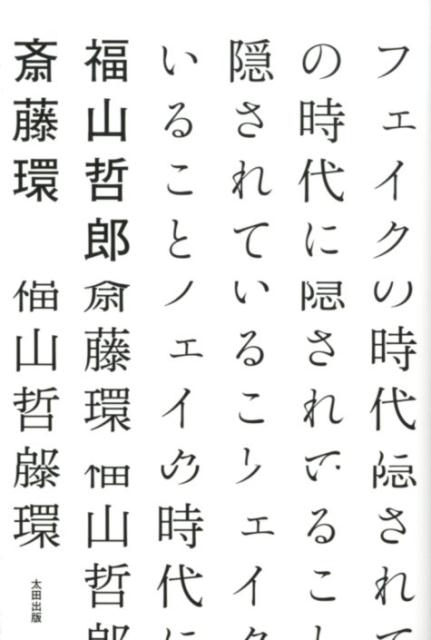 フェイクの時代隠され
の時代に隠されているこ
隠されているこェイク
いることフェイの時代に
福山哲郎斎藤環福山哲郎
斎藤環福山哲環
太田出版